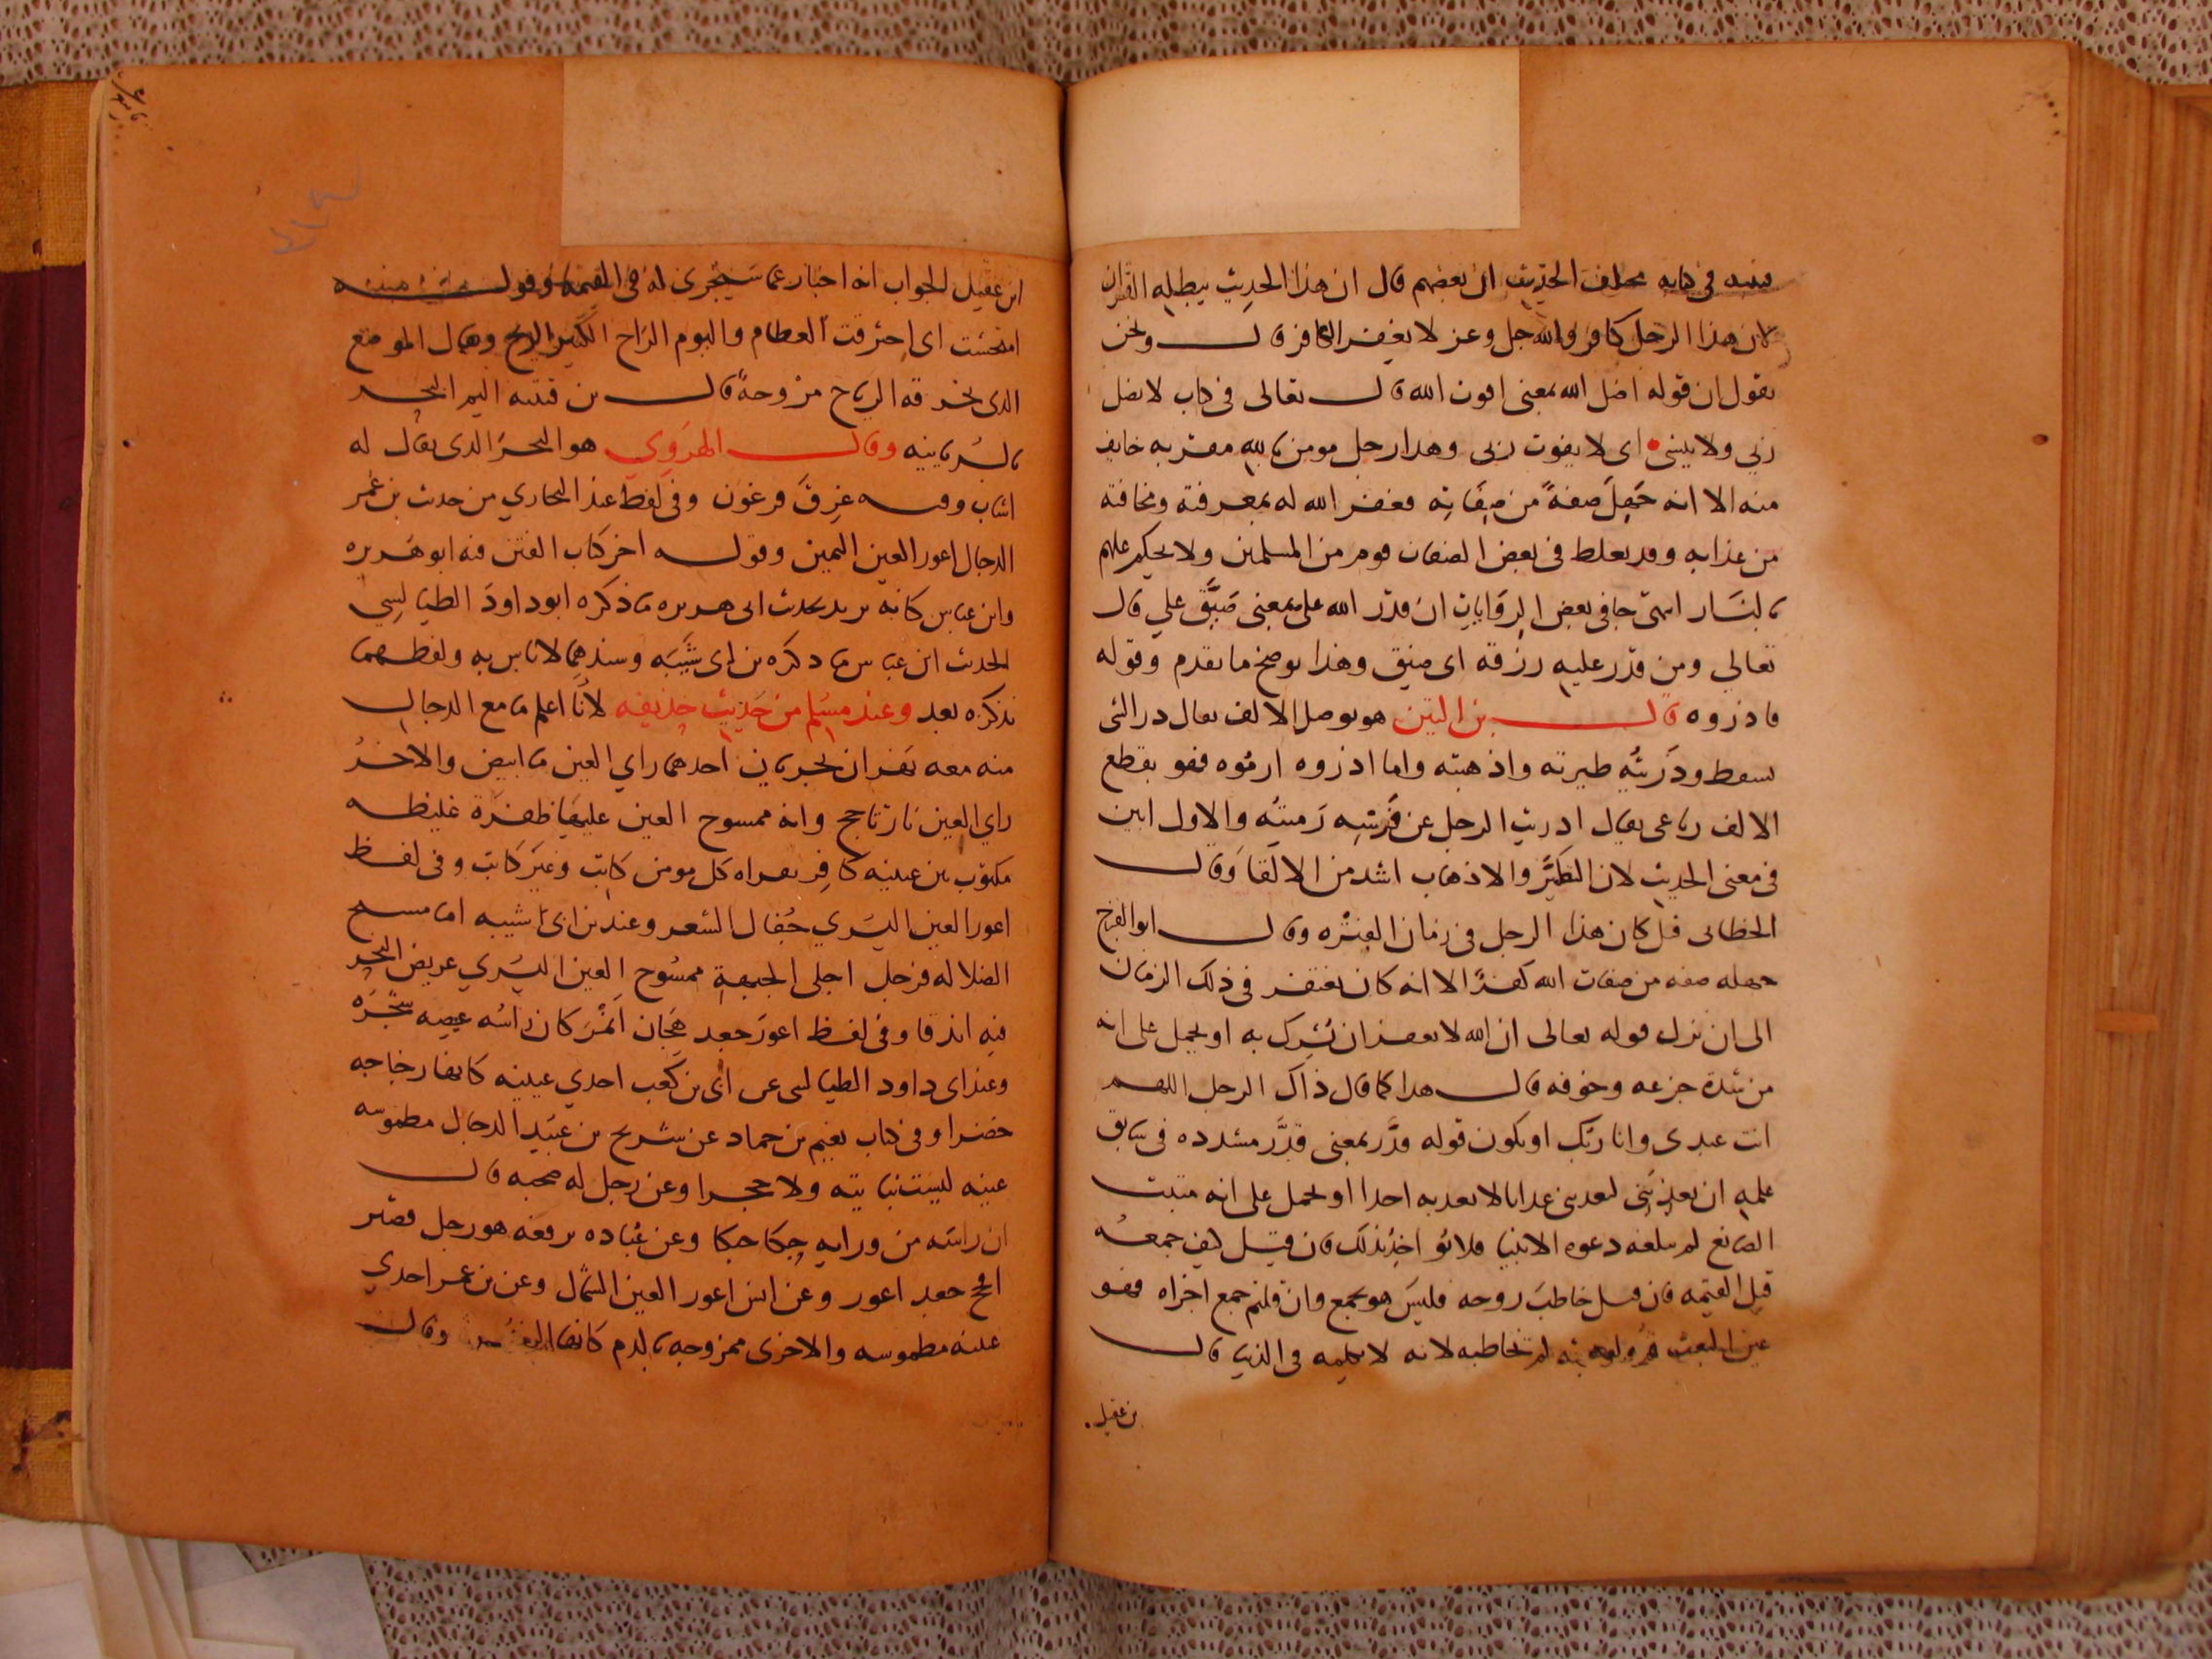 قتيبه في كتابه مختلف الحديث ان بعضهم قال ان هذا الحديث يبطله القران
لان هذا الرجل كافر والله جل وعز لا يغفر الكافر قال ونحن
نقول ان قوله اضل الله بمعنى افوت الله قال تعالى في كتاب لا يضل
ربي ولا ينسى اى لا يفوت ربى وهذا رجل مومن بالله مقر به خايف
منه الا انه جهل صفة من صفاته فغفر الله له بمعرفته ومخافته
من عذابه وقد يغلط في بعض الصفات قوم من المسلمين ولا يحكم عليهم
بالنار جا في بعض الروايات ان قدر الله على بمعنى ضيق علي قال
تعالي ومن قدر عليه رزقه اى ضيق وهذا يوضح ما تقدم وقوله
فاذروه قال بن التين هو بوصل الالف يقال ذر الشى
سقط وذريته طيرته واذهبته واما اذروه ارموه فهو بقطع
الالف رباعى يقال اذريت الرجل عن فرسه رميته والاول ابين
في معنى الحديث لان التطير والاذهاب اشد من الالقا وقال
الخطابى قيل كان هذا الرجل في زمان الفترة وقال ابو الفرج
جهله صفه من صفات الله كفرا الا انه كان يغتفر في ذلك الزمان
الى ان نزل قوله تعالى ان الله لا يغفر ان يشرك به او يحمل على انه
من شدة جزعه وخوفه قال هذا كما قال ذاك الرجل اللهم
انت عبدى وانا ربك او يكون قوله قدر بمعنى قدر مشدده في سابق
علمه ان يعذبني ليعذبنى عذابا لا يعذبه احدا او يحمل على انه مثبت
الصانع لم تبلغه دعوه الانبيا فلا يواخذ بذلك فان قيل كيف جمعه
قبل القيمه فان قيل خاطب روحه فليس هو بجمع وان قلتم جمع اجزاه فهو
عين البعث لم تخاطبه لانه لا يكلمه في الدنيا قال
بن عقيل
ابن عقيل الجواب انه اخبار عما سيجرى له في القيمه وقوله
امتحشت اى احترقت العظام واليوم الراح الكثير الريح ويقال الموضع
الذى تخرقه الرياح مروحة قال بن قتيبه اليم البحر
بالسريانيه وقال الهروي هو البحر الذى يقال له
اساف وفيه غرق فرعون وفي لفظ عند البخاري من حديث بن عمر
الدجال اعور العين اليمين وقوله اخر كتاب الفتن فيه ابو هريره
وابن عباس كانه يريد بحديث ابى هريره ما ذكره ابو داود الطيالسي
الحديث ابن عباس ما ذكره بن ابى شيبه وسندهما لا باس به ولفظهما
نذكره بعد وعند مسلم من حديث حذيفه لانا اعلم بما مع الدجال
منه معه نهران يجريان احدهما راي العين ما ابيض والاخر
راي العين نار تاجج وانه ممسوح العين عليها ظفرة غليظه
مكتوب بين عينيه كافر يقراه كل مومن كاتب وغير كاتب وفي لفظ
اعور العين اليسري جفال الشعر وعند بن ابى شيبه اما مسيح
الضلاله فرجل اجلى الجبهة ممسوح العين اليسري عريض النحر
فيه اندفا وفي لفظ اعور جعد هجان اقمر كان راسه غصنه شجرة
وعند ابى داود الطيالسى عن ابى بن كعب احدي عينيه كانها زجاجه
خضرا وفي كتاب نعيم بن حماد عن شريح بن عبيد الدجال مطموسه
عينه ليست بناتيه ولا حجرا وعن رجل له صحبه قال
ان راسه من ورايه حبكا حبكا وعن عباده يرفعه هو رجل قصير
افحج جعد اعور وعن انس اعور العين الشمال وعن بن عمر احدي
عينيه مطموسه والاخرى ممزوجه بالدم كانها وقال